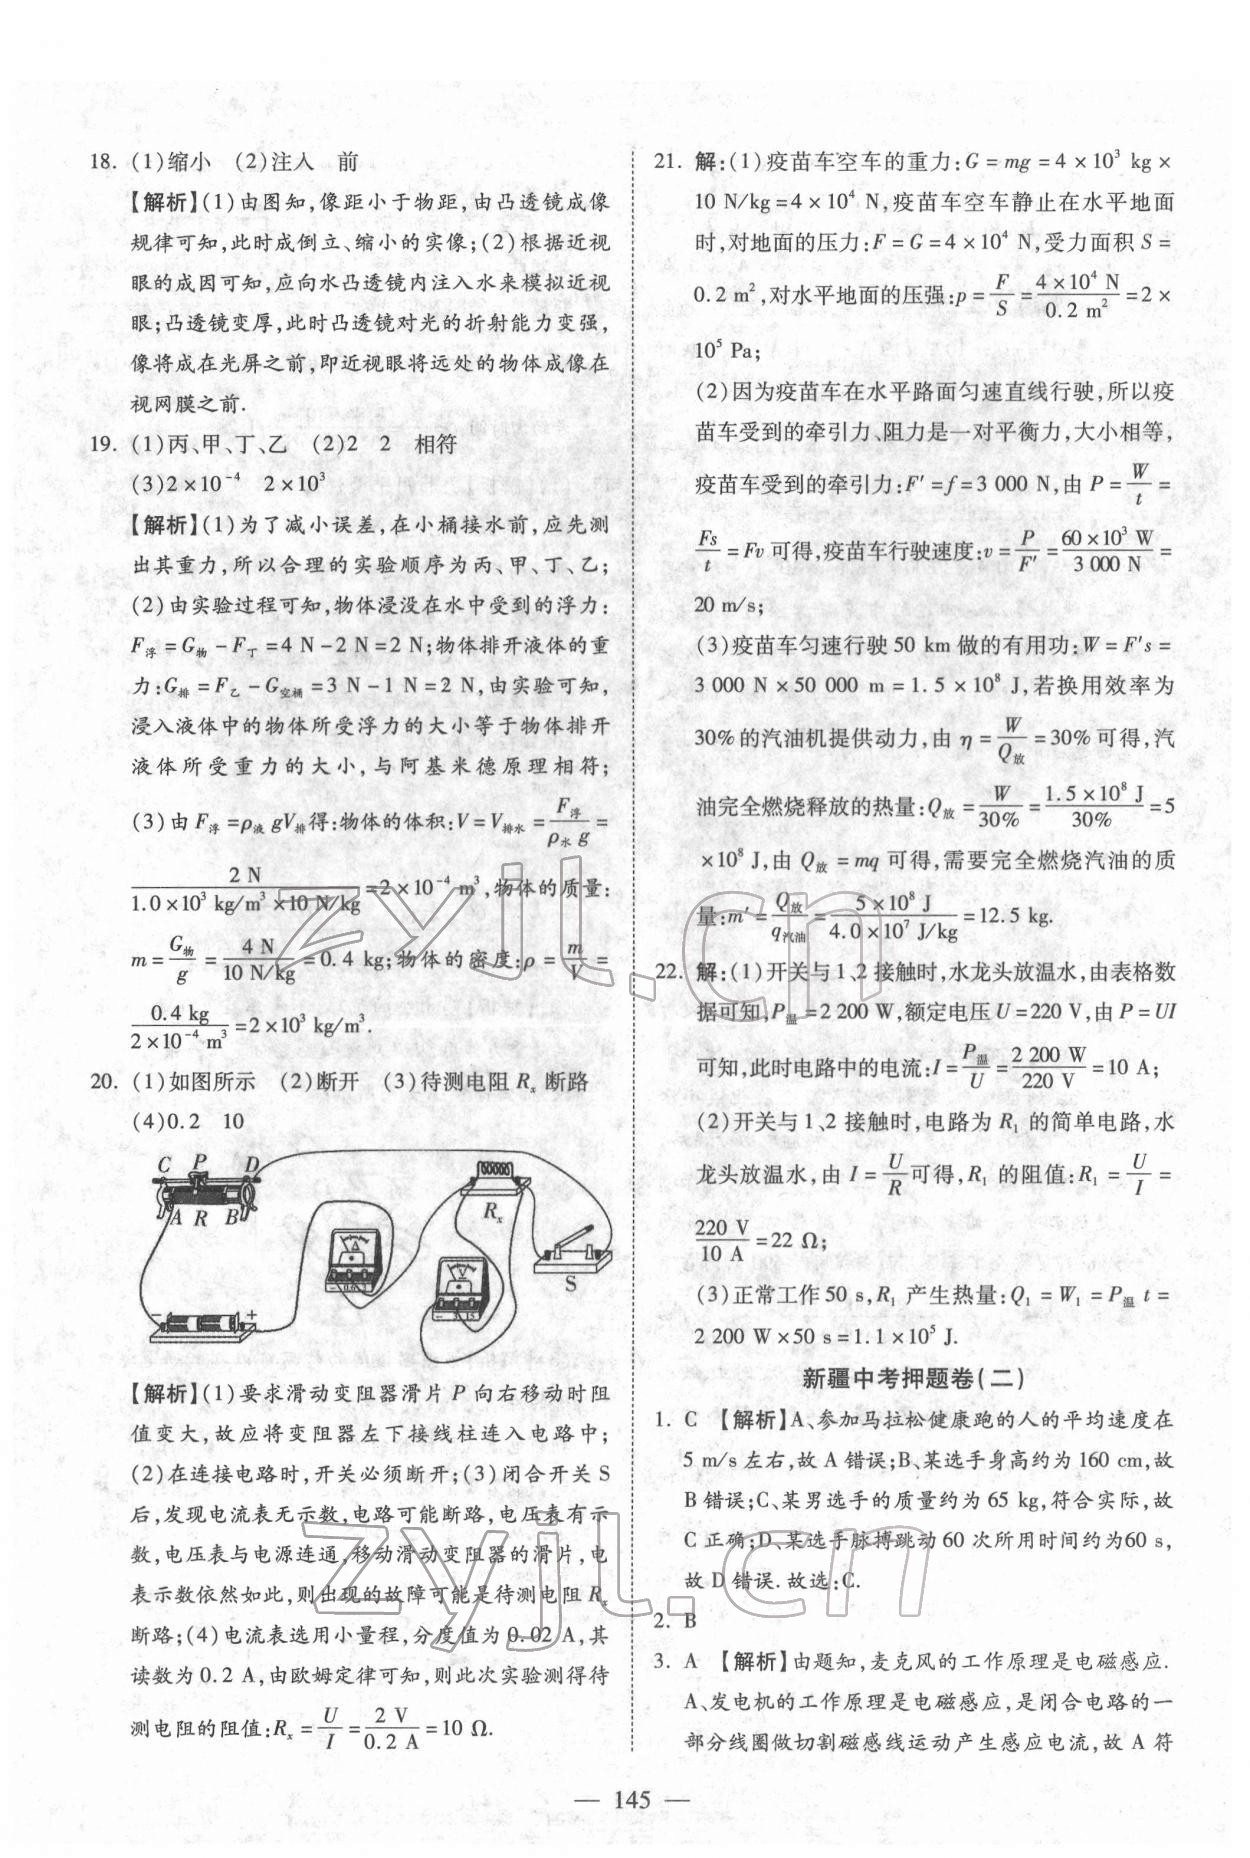 18. (1)缩小　(2)注入　前
【解析】(1)由图知,像距小于物距,由凸透镜成像
规律可知,此时成倒立、缩小的实像;(2)根据近视
眼的成因可知,应向水凸透镜内注入水来模拟近视
眼;凸透镜变厚,此时凸透镜对光的折射能力变强,
像将成在光屏之前,即近视眼将远处的物体成像在
视网膜之前.
19. (1)丙、甲、丁、乙　(2)2　2　相符
(3)2×10⁻⁴　2×10³
【解析】(1)为了减小误差,在小桶接水前,应先测
出其重力,所以合理的实验顺序为丙、甲、丁、乙;
(2)由实验过程可知,物体浸没在水中受到的浮力:
F浮=G物-F丁=4 N-2 N=2 N;物体排开液体的重
力:G排=F乙-G空桶=3 N-1 N=2 N,由实验可知,
浸入液体中的物体所受浮力的大小等于物体排开
液体所受重力的大小,与阿基米德原理相符;
(3)由F浮=ρ液gV排得:物体的体积:V=V排水=F浮/ρ水g=
2 N/1.0×10³ kg/m³×10 N/kg=2×10⁻⁴ m³,物体的质量:
m=G物/g=4 N/10 N/kg=0.4 kg;物体的密度:ρ=m/V=
0.4 kg/2×10⁻⁴ m³=2×10³ kg/m³.
20. (1)如图所示　(2)断开　(3)待测电阻Rx断路
(4)0.2　10
C P D
A R B
Rx
S
A
V
- +
【解析】(1)要求滑动变阻器滑片P向右移动时阻
值变大,故应将变阻器左下接线柱连入电路中;
(2)在连接电路时,开关必须断开;(3)闭合开关S
后,发现电流表无示数,电路可能断路,电压表有示
数,电压表与电源连通,移动滑动变阻器的滑片,电
表示数依然如此,则出现的故障可能是待测电阻Rx
断路;(4)电流表选用小量程,分度值为0.02 A,其
读数为0.2 A,由欧姆定律可知,则此次实验测得待
测电阻的阻值:Rx=U/I=2 V/0.2 A=10 Ω.
21. 解:(1)疫苗车空车的重力:G=mg=4×10³ kg×
10 N/kg=4×10⁴ N,疫苗车空车静止在水平地面
时,对地面的压力:F=G=4×10⁴ N,受力面积S=
0.2 m²,对水平地面的压强:p=F/S=4×10⁴ N/0.2 m²=2×
10⁵ Pa;
(2)因为疫苗车在水平路面匀速直线行驶,所以疫
苗车受到的牵引力、阻力是一对平衡力,大小相等,
疫苗车受到的牵引力:F′=f=3 000 N,由P=W/t=
Fs/t=Fv可得,疫苗车行驶速度:v=P/F′=60×10³ W/3 000 N=
20 m/s;
(3)疫苗车匀速行驶50 km做的有用功:W=F′s=
3 000 N×50 000 m=1.5×10⁸ J,若换用效率为
30%的汽油机提供动力,由η=W/Q放=30%可得,汽
油完全燃烧释放的热量:Q放=W/30%=1.5×10⁸ J/30%=5
×10⁸ J,由Q放=mq可得,需要完全燃烧汽油的质
量:m′=Q放/q汽油=5×10⁸ J/4.0×10⁷ J/kg=12.5 kg.
22. 解:(1)开关与1、2接触时,水龙头放温水,由表格数
据可知,P温=2 200 W,额定电压U=220 V,由P=UI
可知,此时电路中的电流:I=P温/U=2 200 W/220 V=10 A;
(2)开关与1、2接触时,电路为R₁的简单电路,水
龙头放温水,由I=U/R可得,R₁的阻值:R₁=U/I=
220 V/10 A=22 Ω;
(3)正常工作50 s,R₁产生热量:Q₁=W₁=P温t=
2 200 W×50 s=1.1×10⁵ J.
新疆中考押题卷(二)
1. C　【解析】A、参加马拉松健康跑的人的平均速度在
5 m/s左右,故A错误;B、某选手身高约为160 cm,故
B错误;C、某男选手的质量约为65 kg,符合实际,故
C正确;D、某选手脉搏跳动60次所用时间约为60 s,
故D错误.故选:C.
2. B
3. A　【解析】由题知,麦克风的工作原理是电磁感应.
A、发电机的工作原理是电磁感应,是闭合电路的一
部分线圈做切割磁感线运动产生感应电流,故A符
— 145 —
zyjl.cn
zyjl.cn